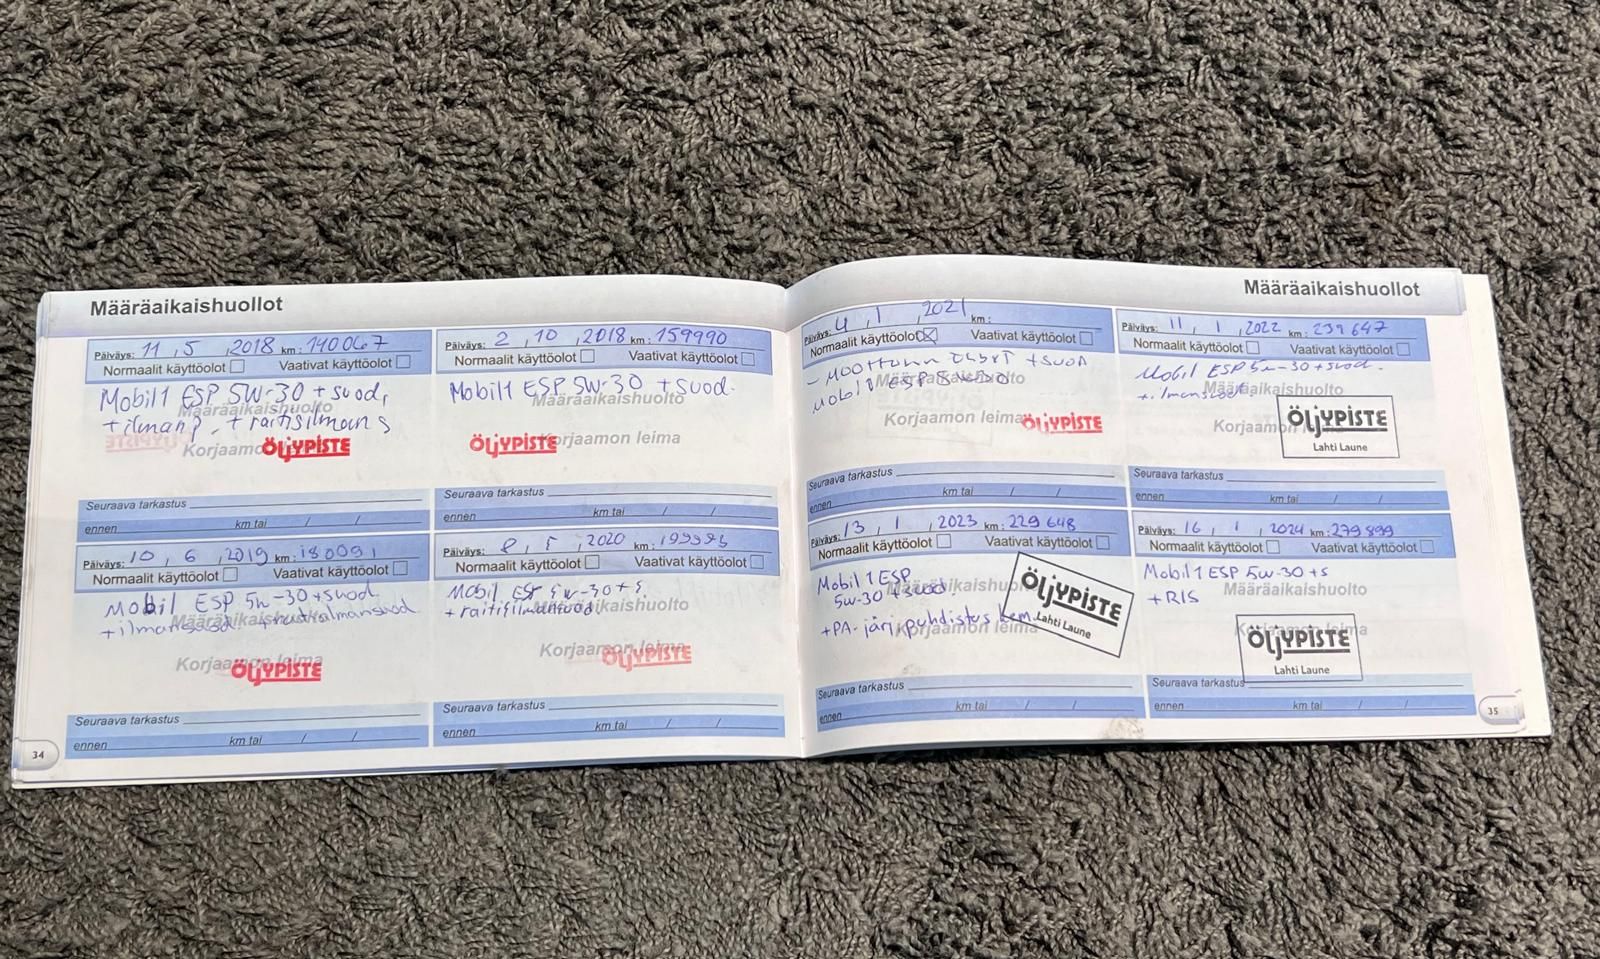 Määräaikaishuollot
Päiväys: 11, 5, 2018 km: 140067
Normaalit käyttöolot Vaativat käyttöolot
Mobil1 ESP 5W-30 + suod,
+ ilmans, + raitisilmans
Määräaikaishuolto
Korjaamo ÖLJYPISTE
Seuraava tarkastus
ennen km tai / /
Päiväys: 2, 10, 2018 km: 159990
Normaalit käyttöolot Vaativat käyttöolot
Mobil1 ESP 5W-30 + suod.
Määräaikaishuolto
ÖLJYPISTE Korjaamon leima
Seuraava tarkastus
ennen km tai / /
Päiväys: 10, 6, 2019 km: 180091
Normaalit käyttöolot Vaativat käyttöolot
Mobil ESP 5w-30 + suod
+ ilmansuod. + raitisilmansuod
Määräaikaishuolto
Korjaamon leima
ÖLJYPISTE
Seuraava tarkastus
ennen km tai / /
Päiväys: 2020 km:
Normaalit käyttöolot Vaativat käyttöolot
Mobil ESP 5w-30 + s.
+ raitisilmansuod
Määräaikaishuolto
Korjaamon leima
ÖLJYPISTE
Seuraava tarkastus
ennen km tai / /
34
Määräaikaishuollot
Päiväys: 4, 1, 2021 km:
Normaalit käyttöolot Vaativat käyttöolot
- Moottorin öljyt + suod
Mobil1 ESP 5w30
Määräaikaishuolto
Korjaamon leima ÖLJYPISTE
Seuraava tarkastus
ennen km tai / /
Päiväys: 11, 1, 2022 km: 239647
Normaalit käyttöolot Vaativat käyttöolot
Mobil ESP 5w-30 + suod.
+ ilmansuod.
Määräaikaishuolto
Korjaamon
ÖLJYPISTE
Lahti Laune
Seuraava tarkastus
ennen km tai / /
Päiväys: 13, 1, 2023 km: 229648
Normaalit käyttöolot Vaativat käyttöolot
Mobil 1 ESP
5w-30 + suod.
Määräaikaishuolto
+ PA-järj. puhdistus kem.
Korjaamon leima
ÖLJYPISTE
Lahti Laune
Seuraava tarkastus
ennen km tai / /
Päiväys: 16, 1, 2024 km: 279899
Normaalit käyttöolot Vaativat käyttöolot
Mobil 1 ESP 5w-30 + s
+ RIS
Määräaikaishuolto
Korjaamon leima
ÖLJYPISTE
Lahti Laune
Seuraava tarkastus
ennen km tai / /
35